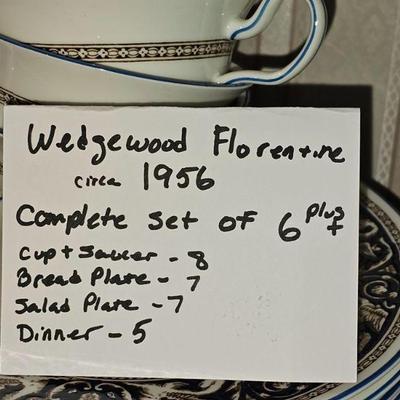 Wedgewood Florentine
circa 1956
Complete set of 6 plus +
Cup + Saucer - 8
Bread Plate - 7
Salad Plate - 7
Dinner - 5